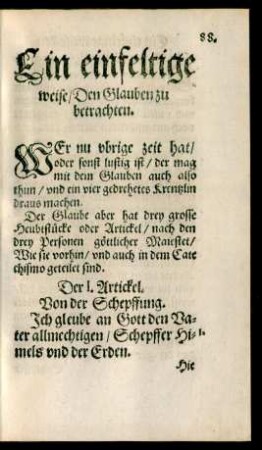 88.
Ein einfeltige
weise / Den Glauben zu
betrachten.
WEr nu vbrige zeit hat /
oder sonst lustig ist / der mag
mit dem Glauben auch also
thun / vnd ein vier gedrehetes Krentzlin
draus machen.
Der Glaube aber hat drey grosse
Heubtstücke oder Artickel / nach den
drey Personen göttlicher Maiestet /
Wie sie vorhin / vnd auch in dem Cate
chismo geteilet sind.
Der I. Artickel.
Von der Schepffung.
Ich gleube an Gott den Va-
ter allmechtigen / Schepffer Hi-
mels vnd der Erden.
Hie